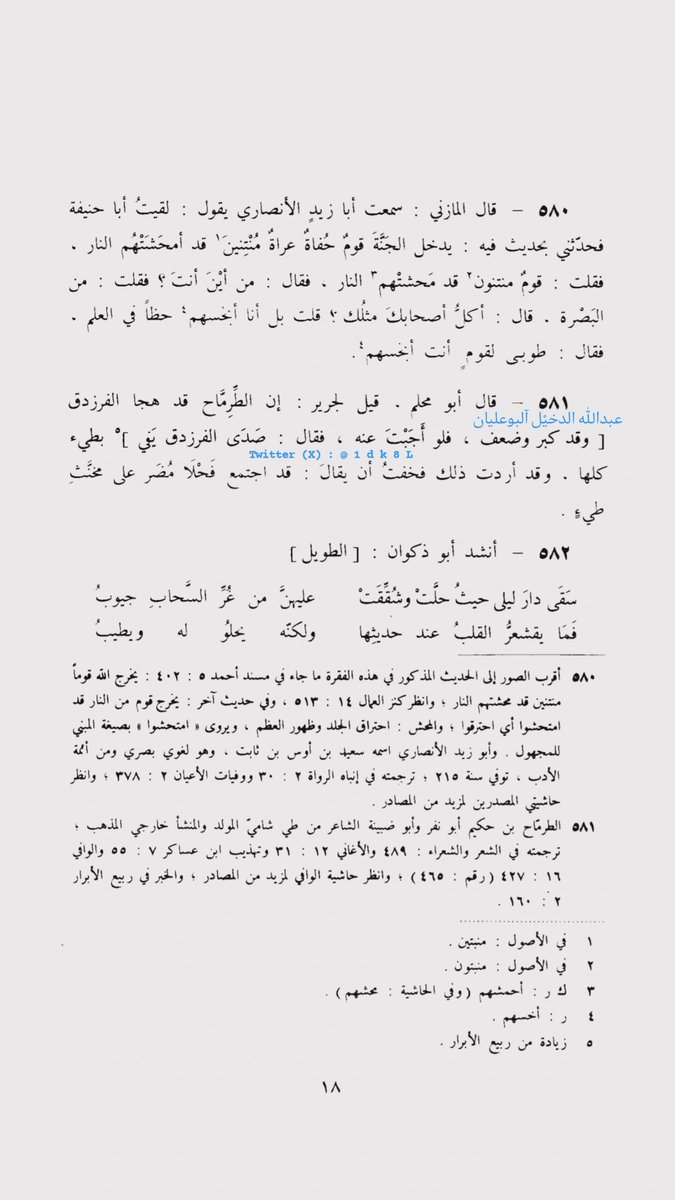 ٥٨٠ – قال المازني : سمعت أبا زيدٍ الأنصاري يقول : لقيتُ أبا حنيفة
فحدّثني بحديث فيه : يدخل الجَنَّةَ قومٌ حُفاةٌ عراةٌ مُنْتِنينَ١ قد أمحَشَتْهُم النار .
فقلت : قومٌ منتنون٢ قد مَحشتْهم٣ النار ، فقال : من أيْنَ أنتَ ؟ فقلت : من
البَصْرة . قال : أكلُّ أصحابكَ مثلُك ؟ قلت بل أنا أبخَسهم٤ حظاً في العلم .
فقال : طوبى لقومٍ أنت أبخَسهم٤.
٥٨١ – قال أبو محلم . قيل لجرير : إن الطِّرِمَّاح قد هجا الفرزدق
عبدالله الدخيّل آلبوعليان
[ وقد كبر وضعف ، فلو أَجَبْتَ عنه ، فقال : صَدَى الفرزدق يَفي ]٥ بطيء
Twitter (X) : @ 1 d k 8 L
كلها . وقد أردت ذلك فخفتُ أن يقالَ : قد اجتمع فَحْلَا مُضَر على مخنَّثِ
طيءٍ .
٥٨٢ – أنشد أبو ذكوان : [ الطويل ]
سَقَى دارَ ليلى حيثُ حلَّتْ وشُقِّقَتْ عليهنَّ من غُرِّ السَّحابِ جيوبُ
فَمَا يقشعرُّ القلبُ عند حديثِها ولكنّه يحلوُ له ويطيبُ
٥٨٠ أقرب الصور إلى الحديث المذكور في هذه الفقرة ما جاء في مسند أحمد ٥ : ٤٠٢ : يخرج الله قوماً
منتنين قد محشتهم النار ؛ وانظر كنز العمال ١٤ : ٥١٣ ، وفي حديث آخر : يخرج قوم من النار قد
امتحشوا أي احترقوا ؛ والمحش : احتراق الجلد وظهور العظم ، ويروى « امتحشوا » بصيغة المبني
للمجهول . وأبو زيد الأنصاري اسمه سعيد بن أوس بن ثابت ، وهو لغوي بصري ومن أئمة
الأدب ، توفي سنة ٢١٥ ؛ ترجمته في إنباه الرواة ٢ : ٣٠ ووفيات الأعيان ٢ : ٣٧٨ ؛ وانظر
حاشيتي المصدرين لمزيد من المصادر .
٥٨١ الطرمّاح بن حكيم أبو نفر وأبو ضبينة الشاعر من طي شاميّ المولد والمنشأ خارجي المذهب ؛
ترجمته في الشعر والشعراء : ٤٨٩ والأغاني ١٢ : ٣١ وتهذيب ابن عساكر ٧ : ٥٥ والوافي
١٦ : ٤٢٧ ( رقم : ٤٦٥ ) ؛ وانظر حاشية الوافي لمزيد من المصادر ؛ والخبر في ربيع الأبرار
٢ : ١٦٠ .
١ في الأصول : منبتين .
٢ في الأصول : منبتون .
٣ ك ر : أحمشهم ( وفي الحاشية : محشهم ) .
٤ ر : أخسهم .
٥ زيادة من ربيع الأبرار .
١٨